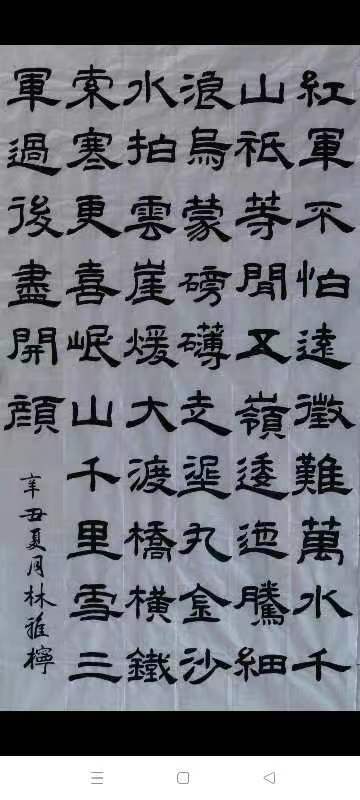 紅軍不怕遠徵難萬水千
山祇等閒五嶺逶迤騰細
浪烏蒙磅礴走埿丸金沙
水拍雲崖煖大渡橋橫鐵
索寒更喜岷山千里雪三
軍過後盡開顏
辛丑夏月林雅檸